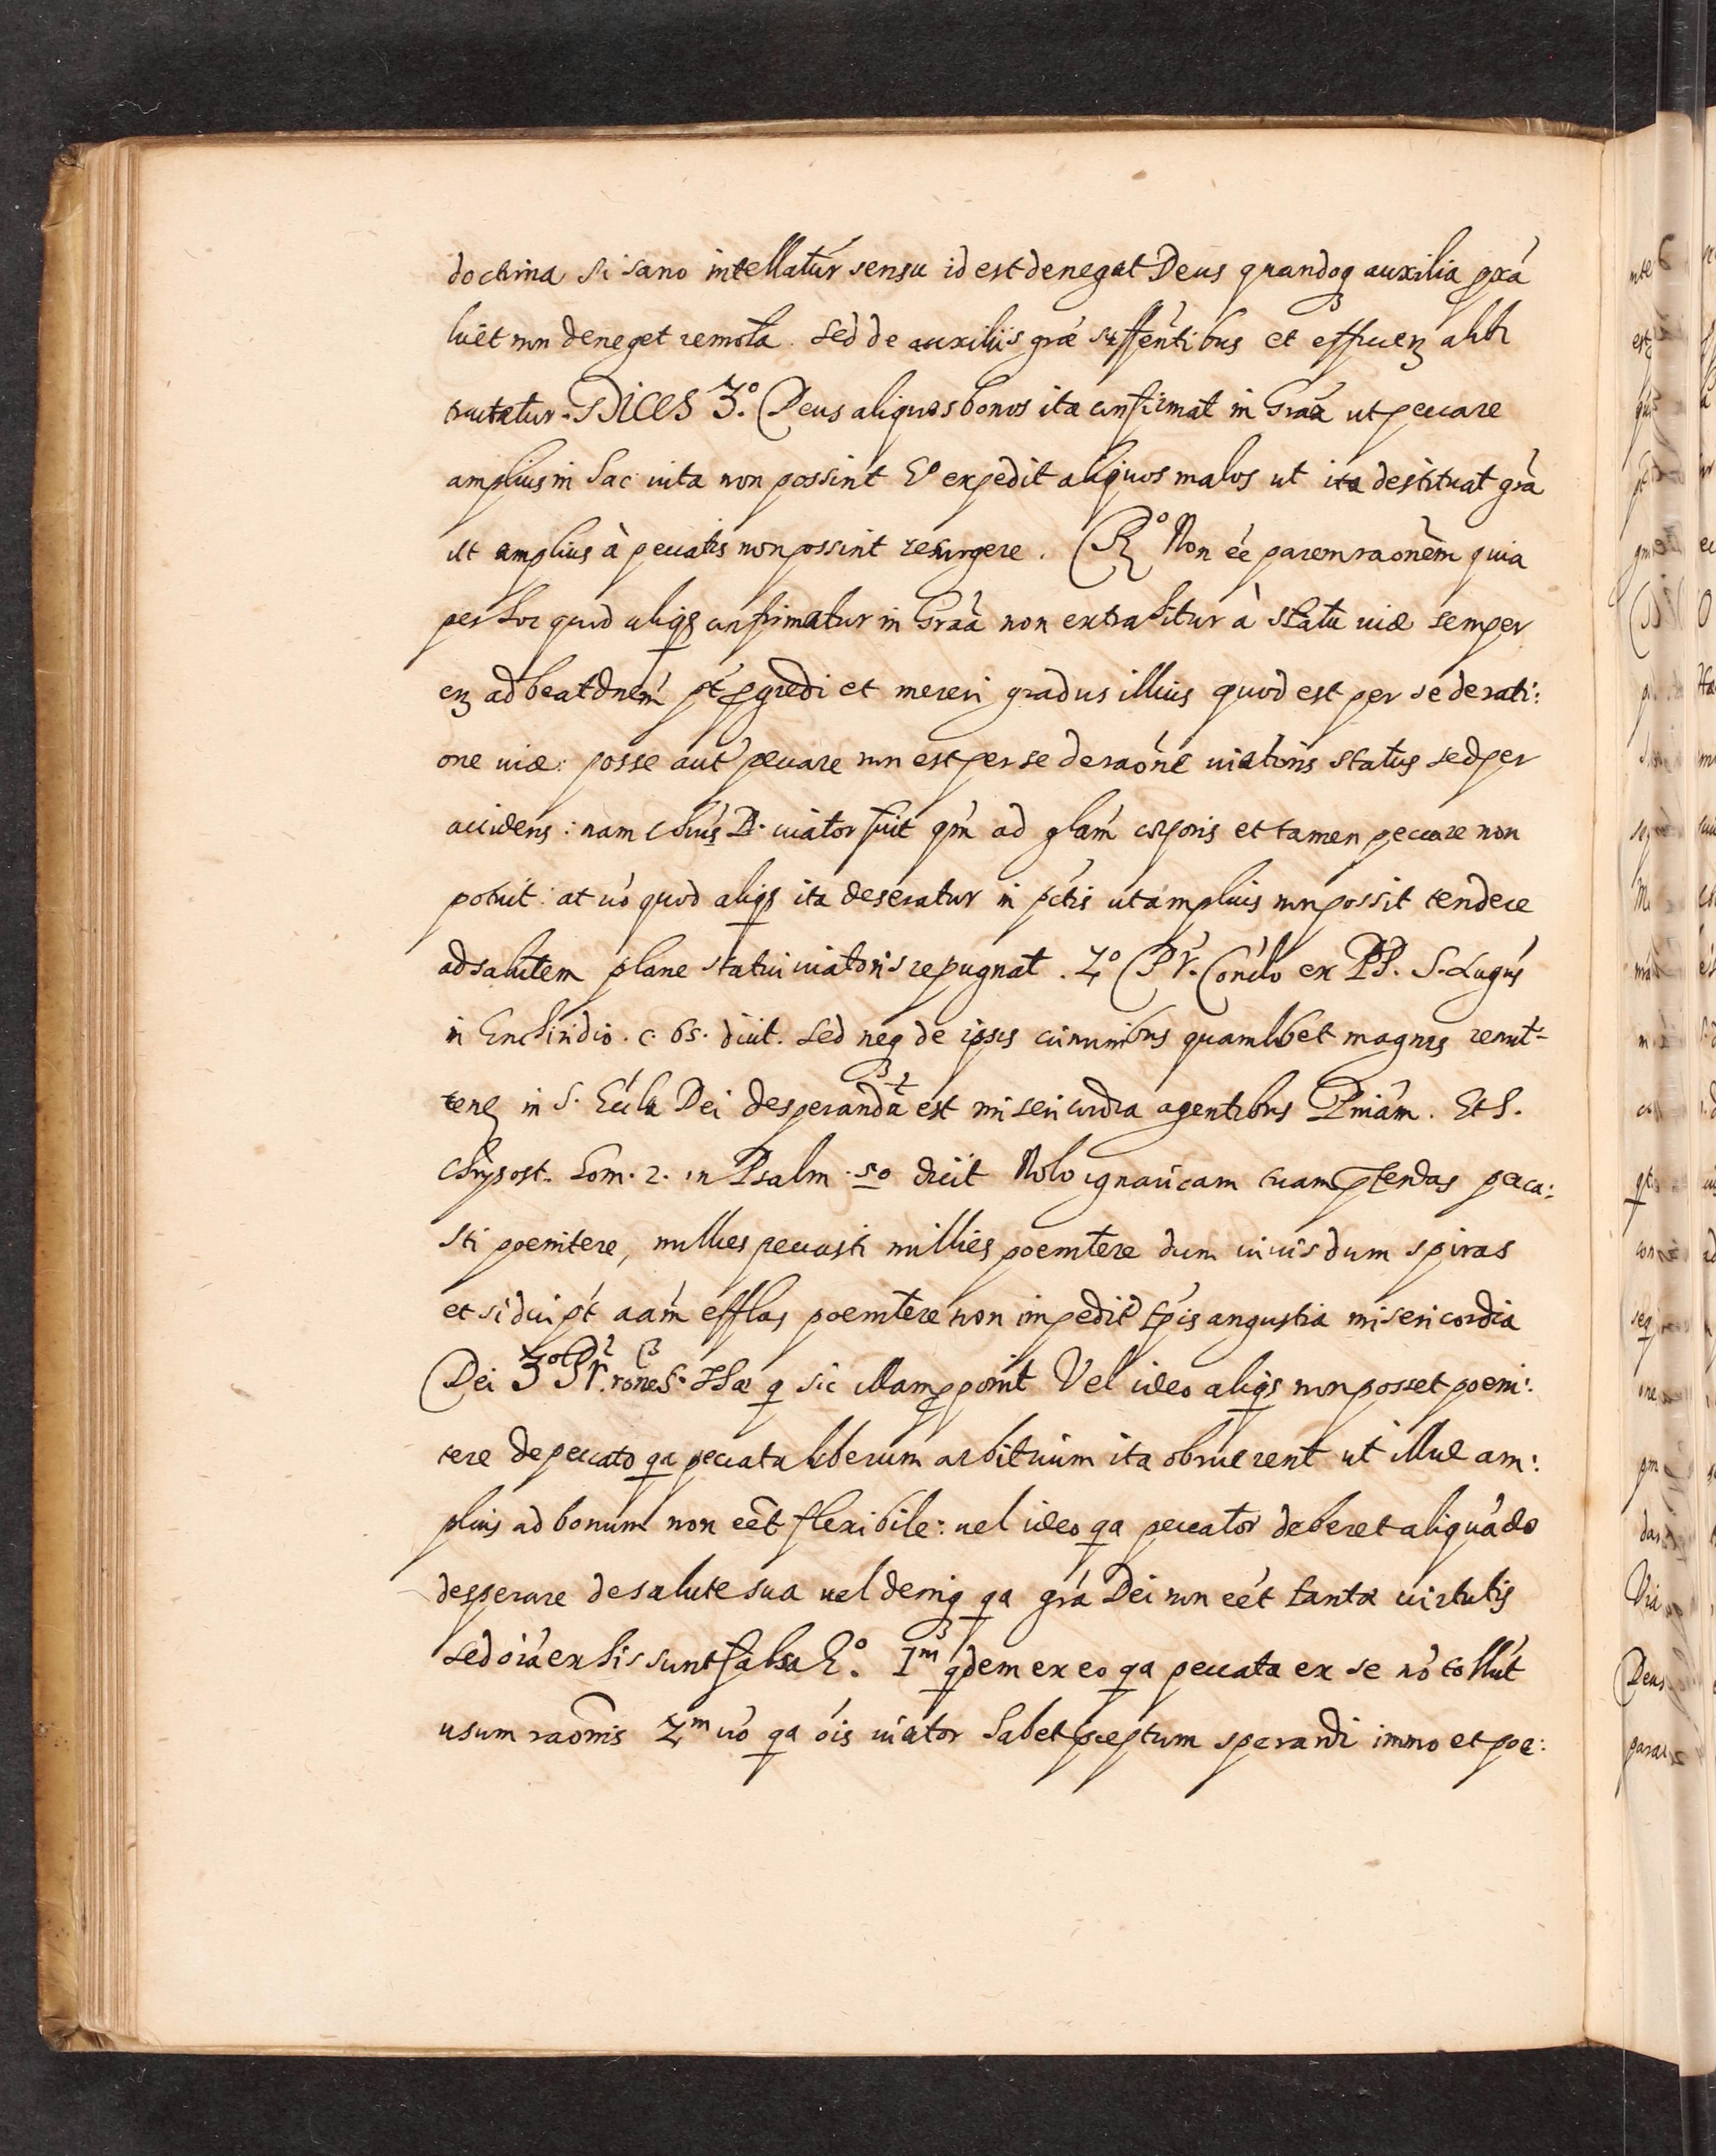 doctrina si sano intellatúr sensu id est denegat Deus quandoq auxilia pxá
licét non deneget remota. Sed de auxiliis grǽ suffentibus et efficuenz alibi
tractatur. DICES 3.º Deus aliquos bonos ita confirmat in Graá ut peccare
amplius in hac uita non possint Eº expedit aliquos malos ut ita destituat grá
ut amplius à peccatis non possint resurgere. Rº Non eé parem raonem quia
per hoc quod aliqs confirmatur in Graá non extrahitur à statu uiæ semper
enz ad beatdnem pt pgredi et mereri gradus illius quod est per se de rati:
one uiæ: posse aut peccare non est per se de raone uiatoris status sed per
accidens: nam Chrús D. uiator fuit qm ad glam corporis et tamen peccare non
potuit: at uó quod aliqs ita deseratur in pctis ut amplius non possit tendere
ad salutem plane statui uiatoris repugnat. 2º Pr. Conclo ex PP. S. Augús
in Enchiridio. c. 65. dicit. Sed neq de ipsis criminibus quamlibet magnis remit-
tenz in S. Eccla Dei desperanda est misericordia agentibus Pniám. Et S.
Chrysost. hom. 2. in Psalm. 50 dicit Nolo ignauiam tuam ptendas peca:
sti poenitere, millies peccasti millies poenitere dum uiuis dum spiras
et si dici pt aám efflas poenitere non impedit tpis angustia misericordia
Dei 3º Pr. rone S. Thæ q sic illam pponit Vel ideo aliqs non posset poeni:
tere de peccato qa peccata liberum arbitrium ita obruerent ut illud am:
plius ad bonum non eét flexibile: uel ideo qa peccator deberet aliquádo
desperare de salute sua uel deniq qa grá Dei non eét tantæ uirtutis
sed oiá ex his sunt falsa Eº. 1m qdem ex eo qa peccata ex se nó tollút
usum raonis 2m uó qa óis uiator habet pceptum sperandi immo et poe: